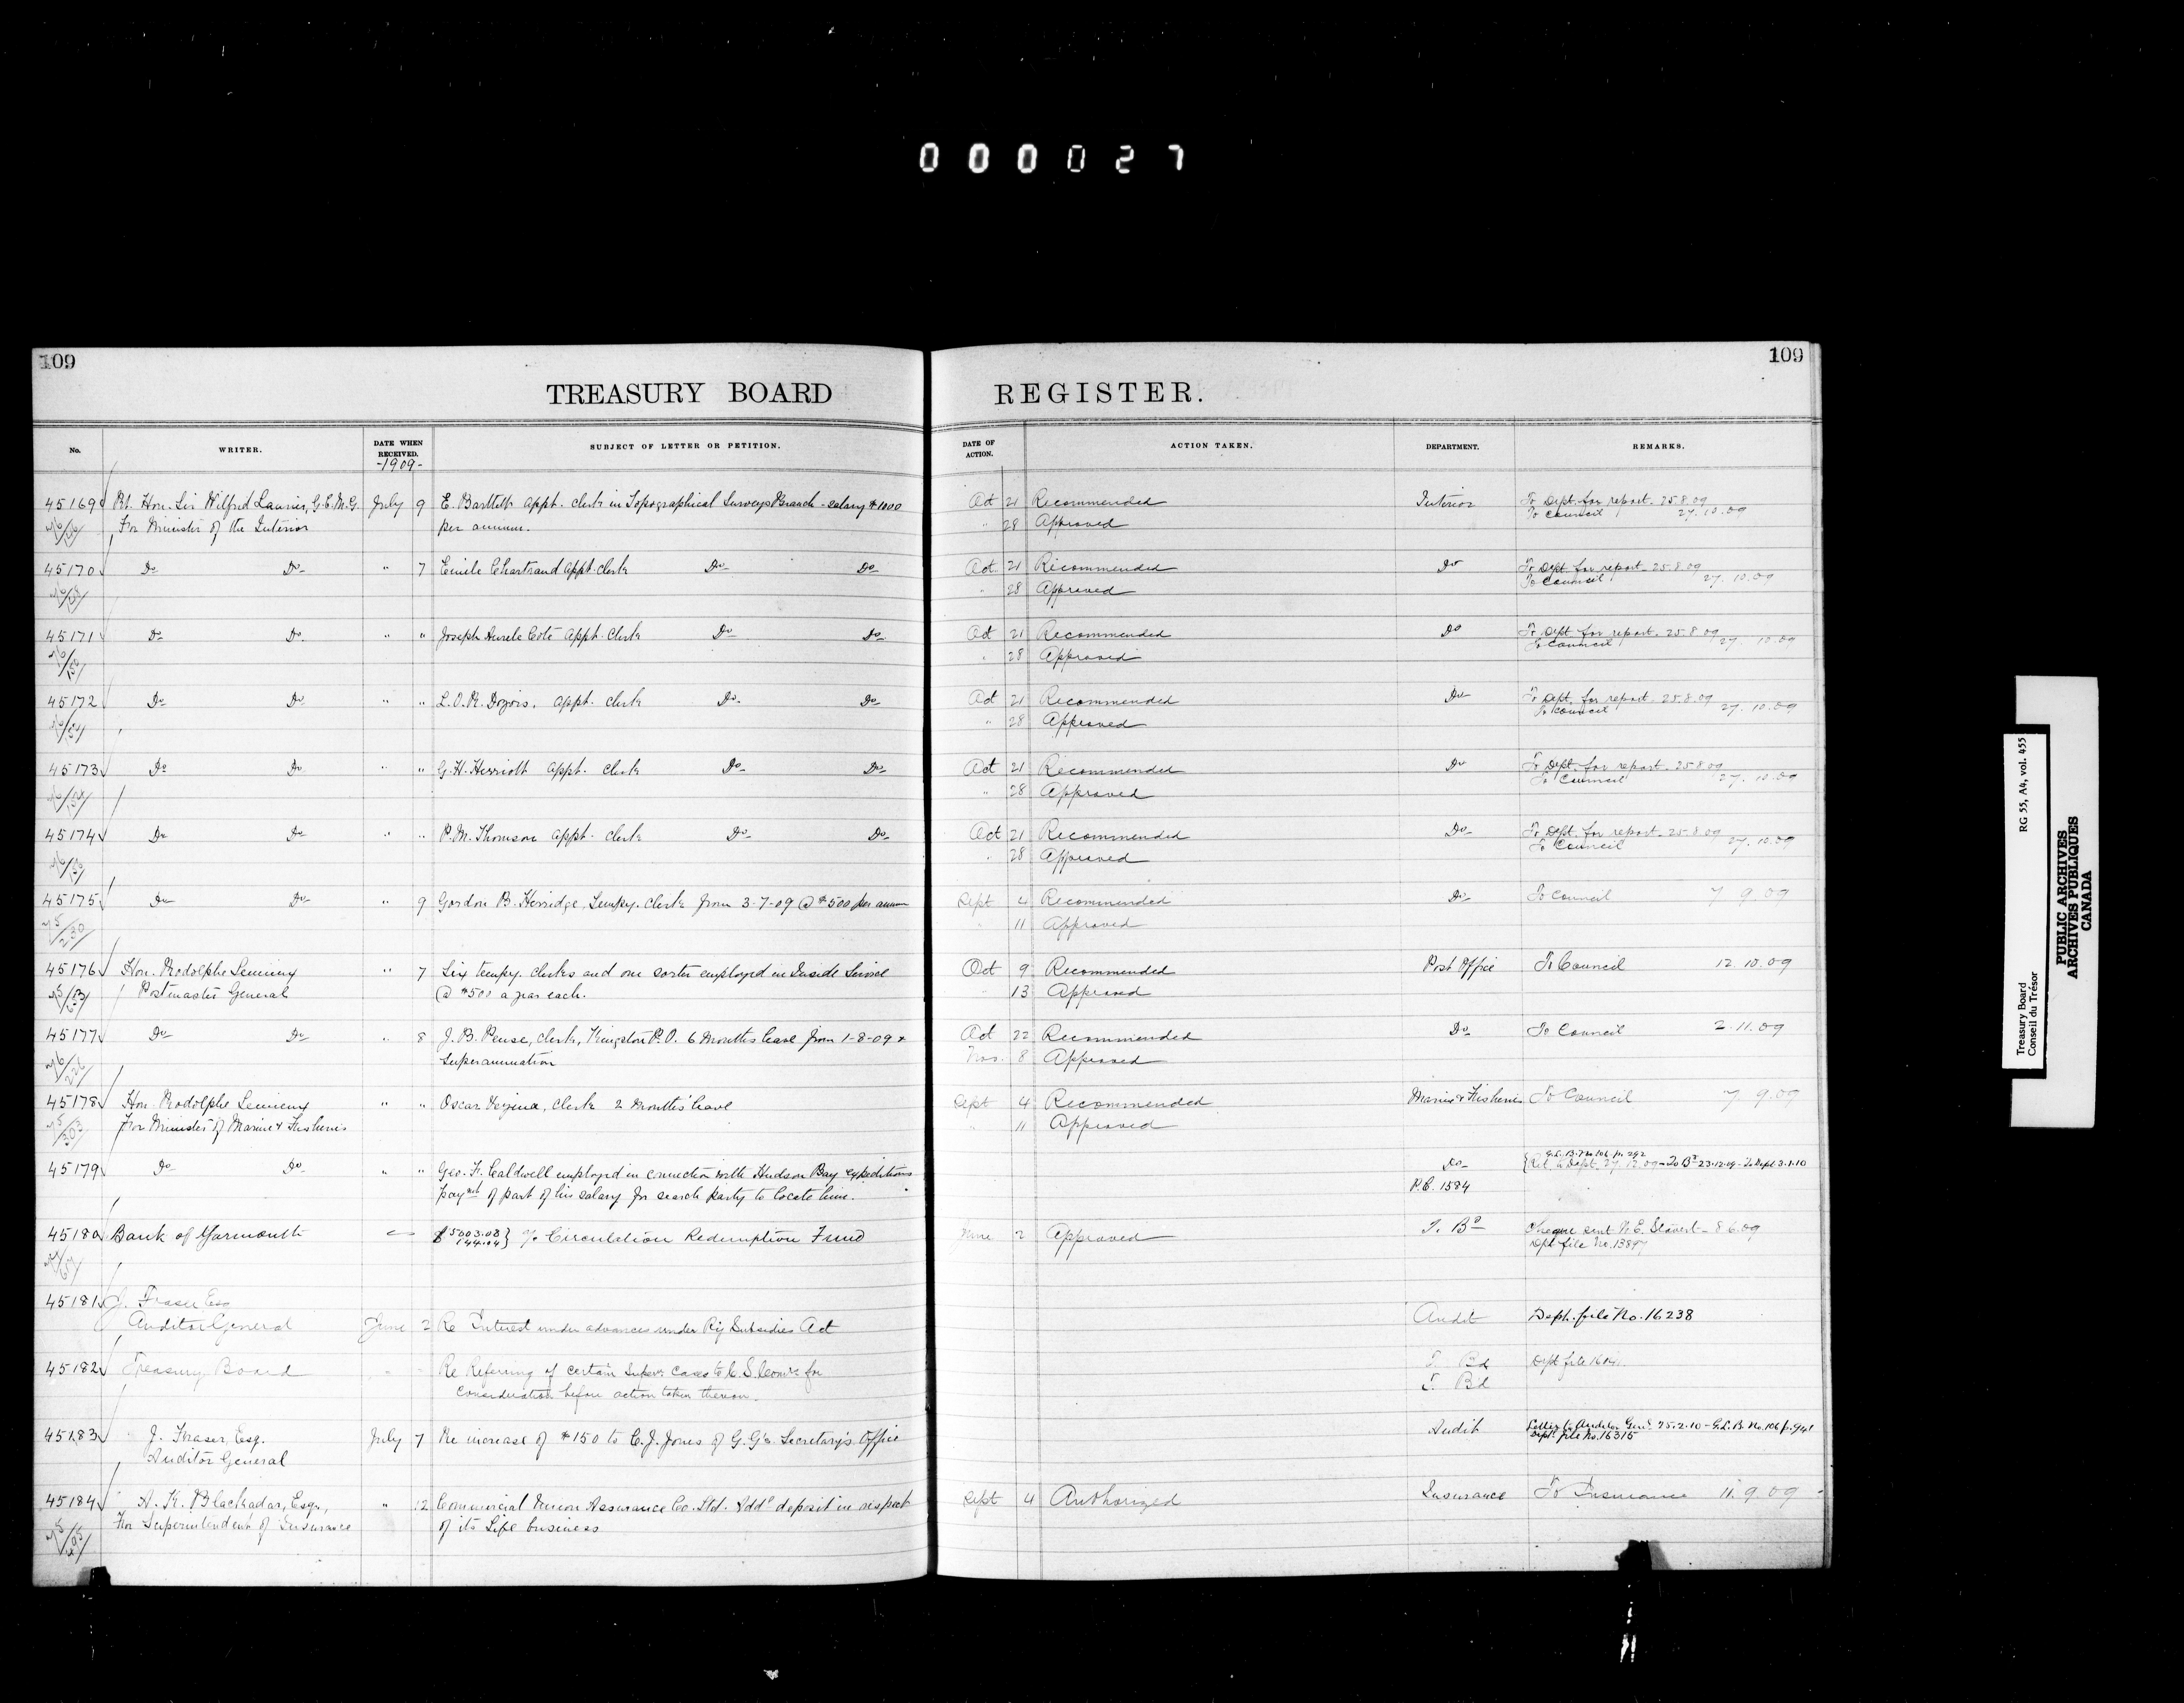 000027
109
109
TREASURY BOARD REGISTER.
No. WRITER. DATE WHEN RECEIVED. SUBJECT OF LETTER OR PETITION. DATE OF ACTION. ACTION TAKEN. DEPARTMENT. REMARKS.
-1909-
45169 Rt. Hon. Sir Wilfrid Laurier, G.C.M.G. July 9 E. Bartlett appt. clerk in Topographical Surveys Branch - salary $1000 Oct 21 Recommended Interior To Dept. for report. 25.8.09
For Minister of the Interior per annum. " 28 Approved To Council 27.10.09
45170 Do Do " 7 Emile Chartrand appt. clerk Do Do Oct 21 Recommended Do To Dept. for report. 25.8.09
" 28 Approved To Council 27.10.09
45171 Do Do " " Joseph Aurele Coté appt. clerk Do Do Oct 21 Recommended Do To Dept. for report. 25.8.09
" 28 Approved To Council 27.10.09
45172 Do Do " " L.O.R. Dozois. appt. clerk Do Do Oct 21 Recommended Do To Dept. for report. 25.8.09
" 28 Approved To Council 27.10.09
45173 Do Do " " G.H. Herriott appt. clerk Do Do Oct 21 Recommended Do To Dept. for report. 25.8.09
" 28 Approved To Council 27.10.09
45174 Do Do " " P.M. Thomson appt. clerk Do Do Oct 21 Recommended Do To Dept. for report. 25.8.09
" 28 Approved To Council 27.10.09
45175 Do Do " 9 Gordon B. Herridge, Tempy. clerk from 3-7-09 @ $500 per annum Sept 4 Recommended Do To Council 7 9.09
" 11 Approved
45176 Hon. Rodolphe Lemieux " 7 Six tempy. clerks and one sorter employed in Inside Service Oct 9 Recommended Post Office To Council 12.10.09
Postmaster General @ $500 a year each. " 13 Approved
45177 Do Do " 8 J.B. Pense, clerk, Kingston P.O. 6 months leave from 1-8-09 & Oct 22 Recommended Do To Council 2.11.09
Superannuation Nov. 8 Approved
45178 Hon. Rodolphe Lemieux " " Oscar Vezina, clerk 2 months' leave Sept 4 Recommended Marine & Fisheries To Council 7 9.09
For Minister of Marine & Fisheries " 11 Approved
45179 Do Do " " Geo. F. Caldwell employed in connection with Hudson Bay expeditions Do G.L.B. No 106 p. 292
Ret. to Dept. 27.12.09 - To Bd 23.12.09 - To Dept 3.1.10
paymt of part of his salary for search party to locate him. P.C. 1584
45180 Bank of Yarmouth $5003.08 144.04} a/c Circulation Redemption Fund June 2 Approved T. Bd Cheque sent N.E. Stavert - 8 6.09
Dpt file No. 13897
45181 J. Fraser Esq
Auditor General June 2 Re Interest under advances under Ry Subsidies Act Audit Dept. file No. 16238
45182 Treasury Board Re Refering of certain Super. cases to C.S. Comrs for T. Bd Dept file
consideration before action taken thereon. T. Bd
45183 J. Fraser, Esq. July 7 Re increase of $150 to C.J. Jones of G.G's. Secretary's Office Audit Letter to Auditor Genl 25.2.10 - G.L.B. No. 106 p. 941
Auditor General Dept. file No. 16315
45184 A.K. Blackadar, Esq., " 12 Commercial Union Assurance Co. Ltd. Addl deposit in respect Sept 4 Authorized Insurance To Insurance 11.9.09
For Superintendent of Insurance of its Life business
Treasury Board RG 55, A4, vol. 455
Conseil du Trésor
PUBLIC ARCHIVES
ARCHIVES PUBLIQUES
CANADA